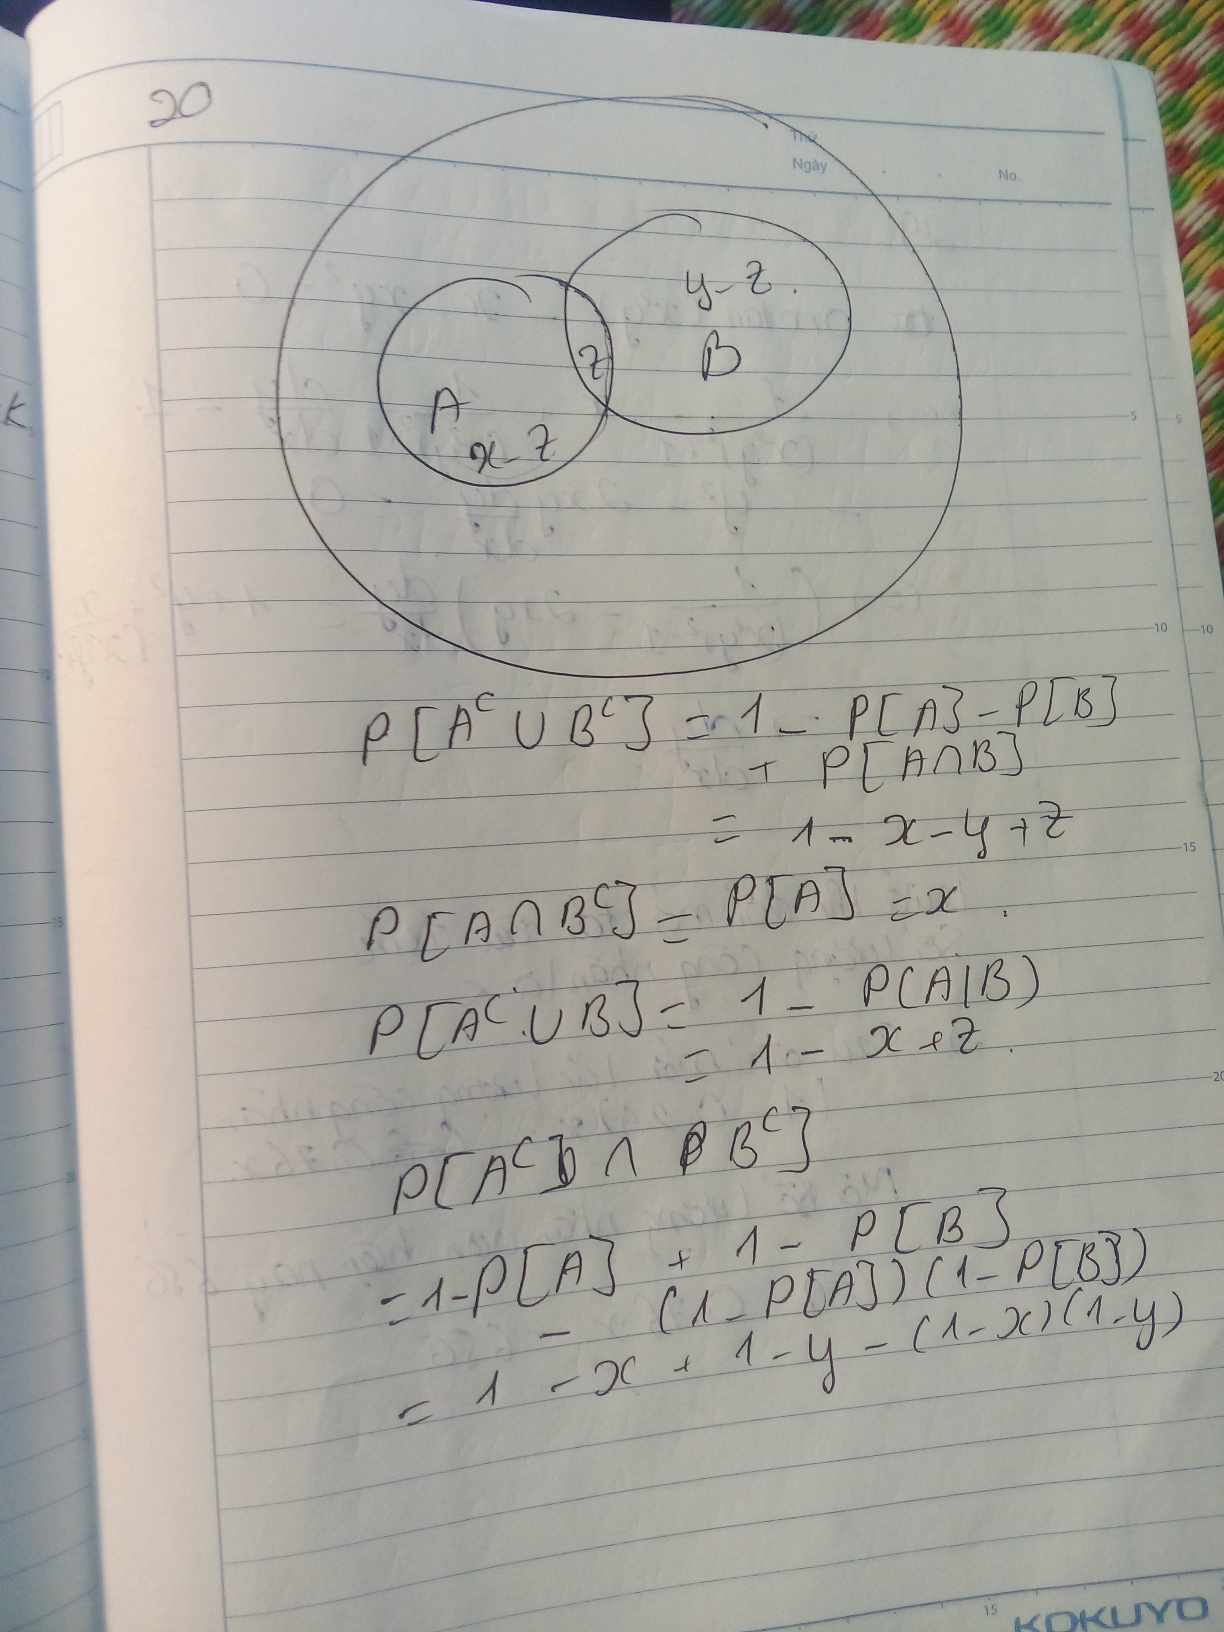 20
Thứ
Ngày
No.
y-z.
z
B
A
x-z
K
5
5
10
10
P[Aᶜ ∪ Bᶜ] = 1 - P[A] - P[B]
+ P[A∩B]
= 1 - x - y + z
15
P[A∩Bᶜ] = P[A] = x.
P[Aᶜ ∪ B] = 1 - P(A|B)
= 1 - x + z.
20
P[Aᶜ] ∩ Bᶜ]
= 1-P[A] + 1 - P[B]
- (1 - P[A])(1 - P[B])
= 1 - x + 1 - y - (1-x)(1-y)
15
KOKUYO